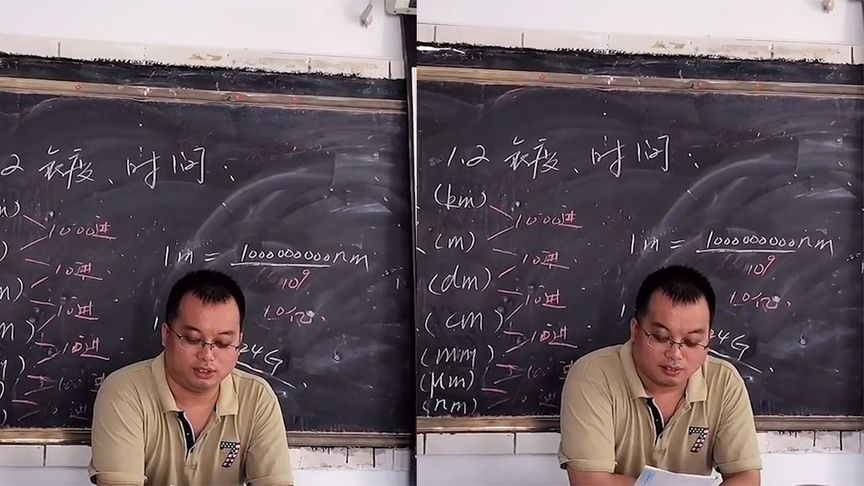 2 长度、时间:
m)
1000进
10进
m)
10进
m
10进
1m = 1000000000nm
10⁹
10亿.
1
24G
7
1.2 长度、时间:
(km)
1000进
(m)
10进
(dm)
10进
(cm)
10进
(mm)
(μm)
(nm)
1m = 1000000000nm
10⁹
10亿.
1
G
7